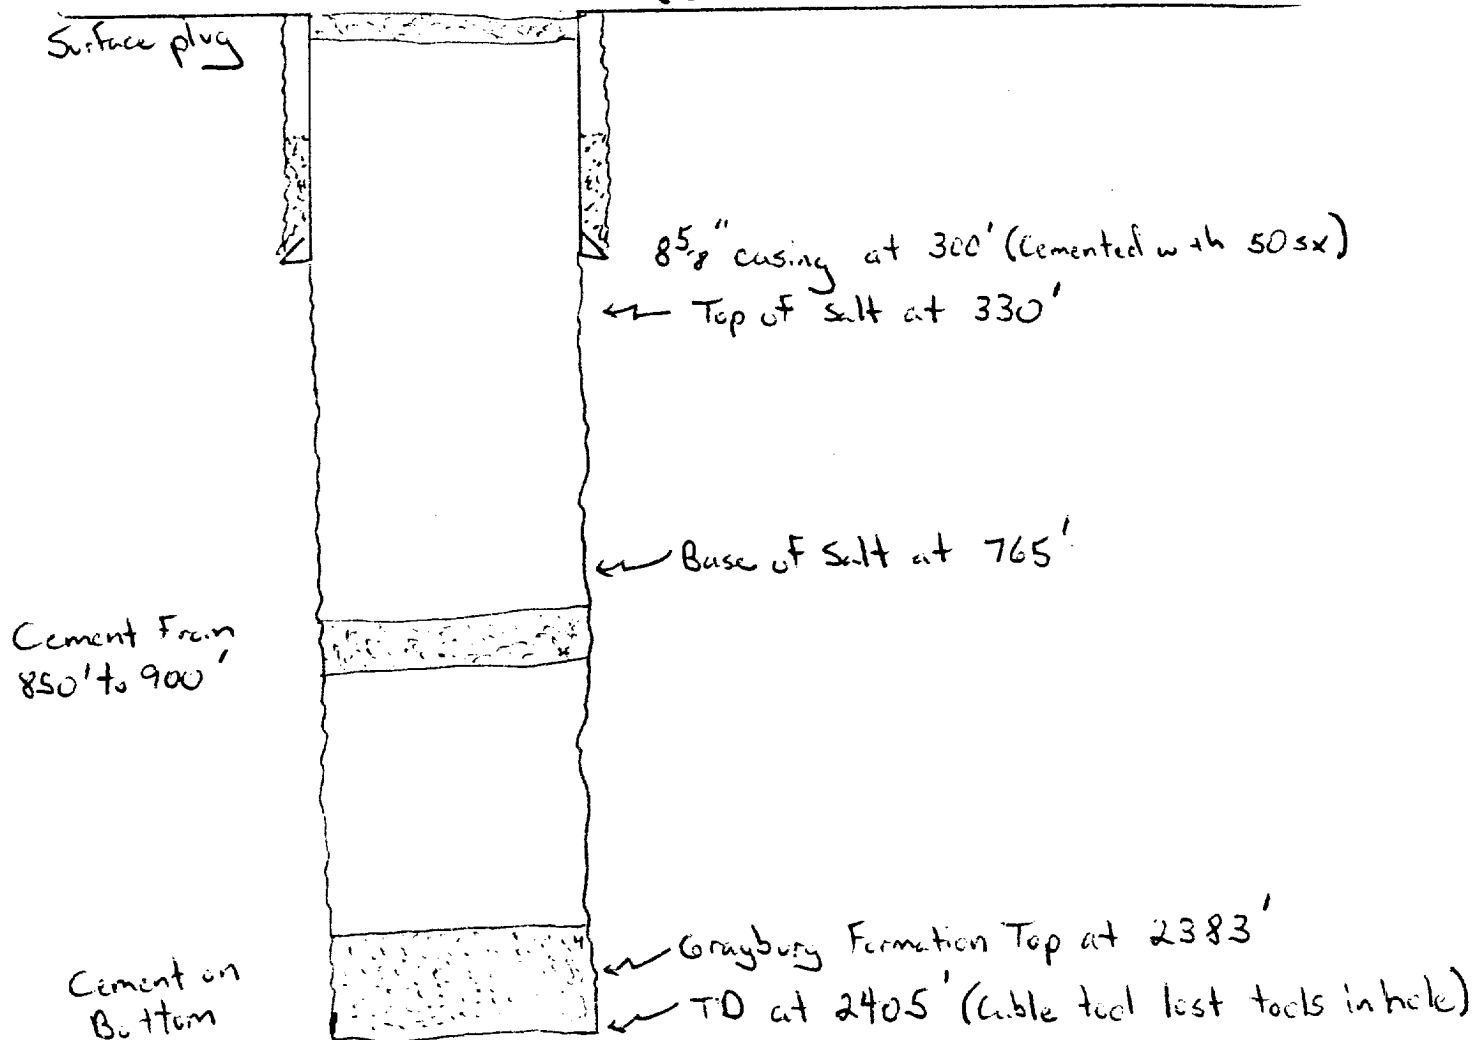 Surface plug
8 5/8" casing at 300' (Cemented with 50 sx)
Top of Salt at 330'
Base of Salt at 765'
Cement From
850' to 900'
Grayburg Formation Top at 2383'
Cement on
Bottom
TD at 2405' (Cable tool lost tools in hole)